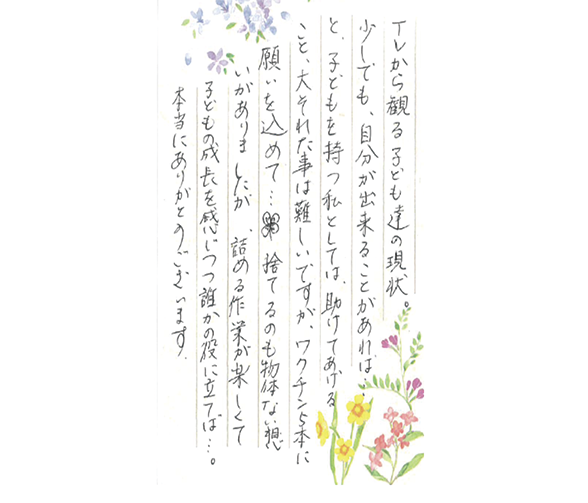 TVから観る子ども達の現状。
少しでも、自分が出来ることがあれば…
と、子どもを持つ私としては、助けてあげる
こと、大それた事は難しいですが、ワクチン5本に
願いを込めて… 捨てるのも物体ない想
いがありましたが、詰める作業が楽しくて
子どもの成長を感じつつ誰かの役に立てば…。
本当にありがとうございます。